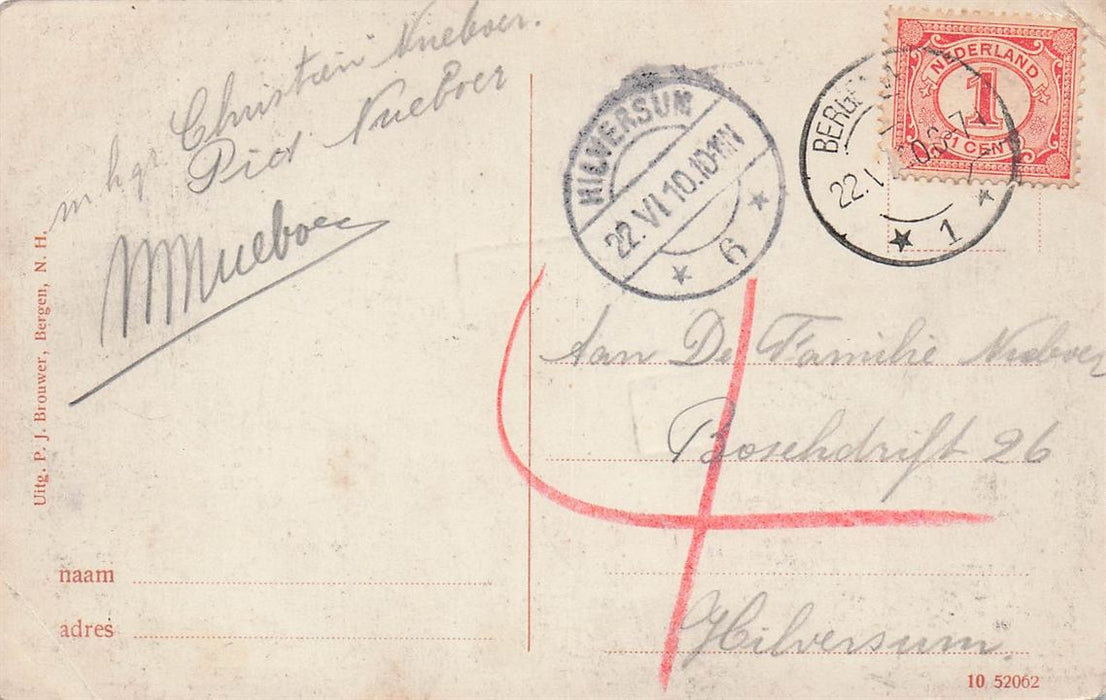 m. h. gr. Christien Nueboer.
Piet Nueboer
Nueboer
Uitg. P. J. Brouwer, Bergen, N. H.
naam
adres
HILVERSUM
22.VI 10.10-11N
6
BERGEN
22.
1
NEDERLAND
1
1 CENT
4
Aan De Familie Nueboer
Boschdrift 26
Hilversum.
10 52062